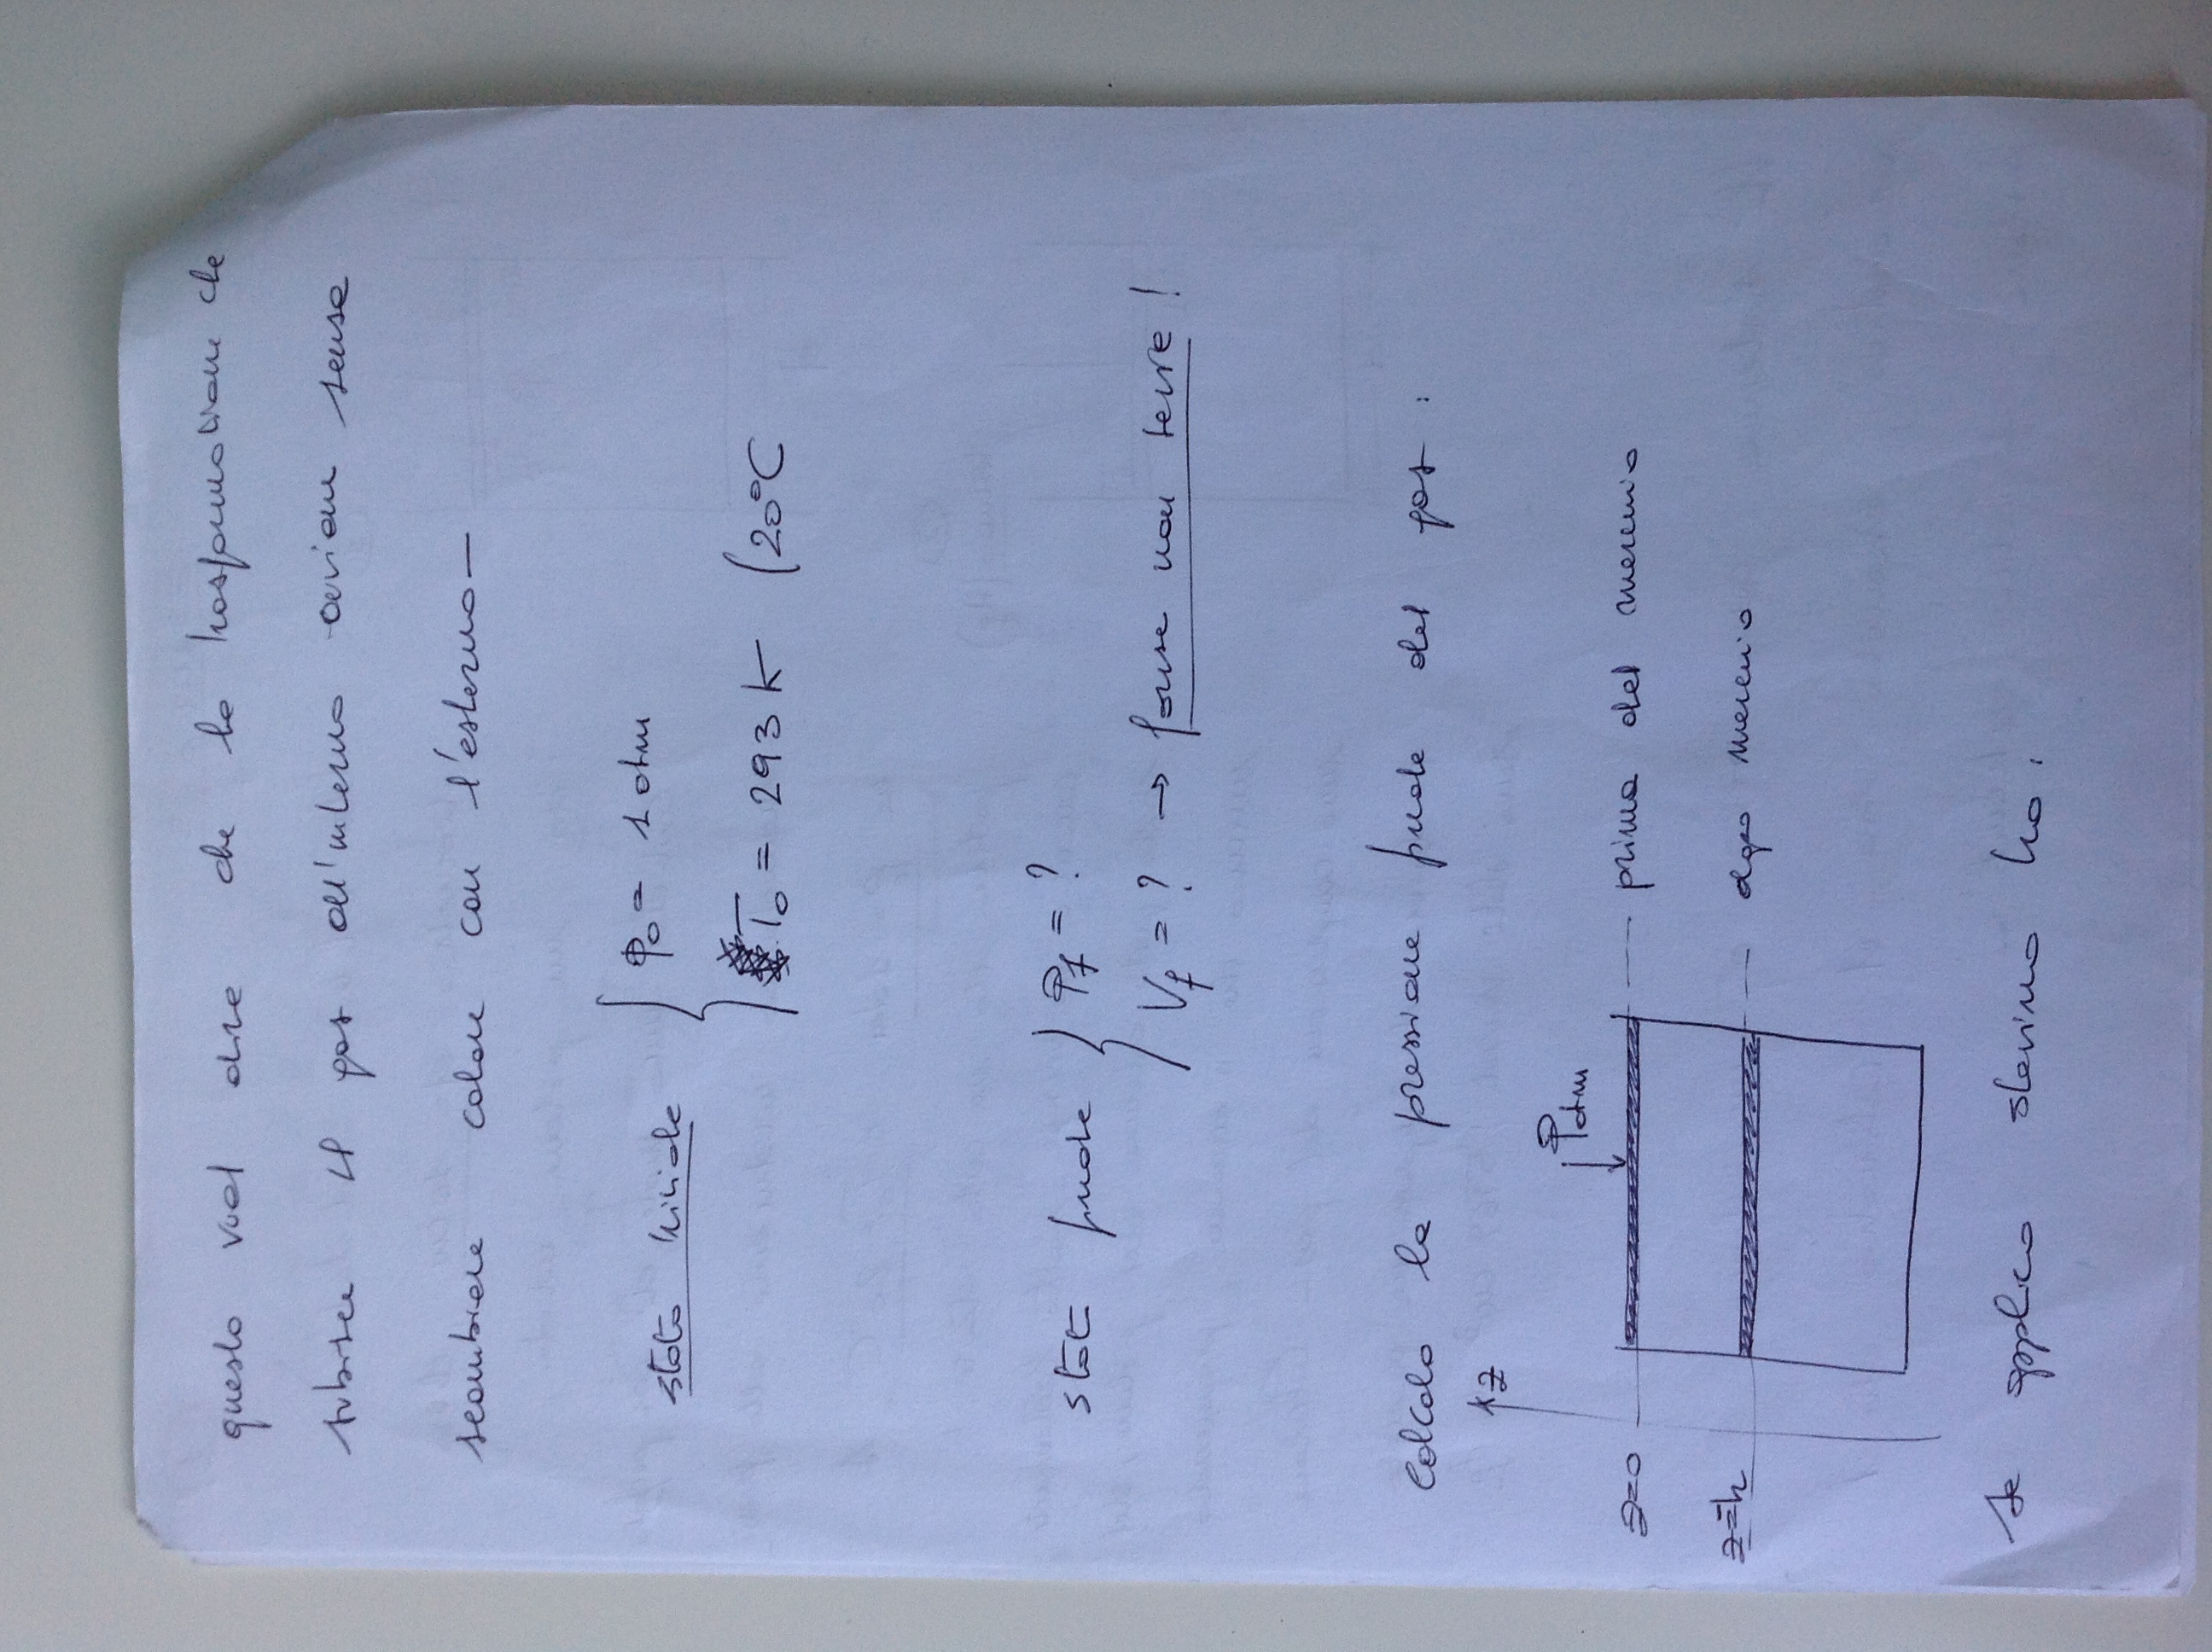 questo vuol dire che la trasformazione che
subisce il gas all'interno avviene senza
scambiare calore con l'esterno—
stato iniziale { p₀ = 1 atm
T₀ = 293 K (20°C
stato finale { Pf = ?
Vf = ? → forse non serve !
Calcolo la pressione finale del gas :
z
Patm
z=0 prima del mercurio
z=h dopo mercurio
Se applico stevino ho :